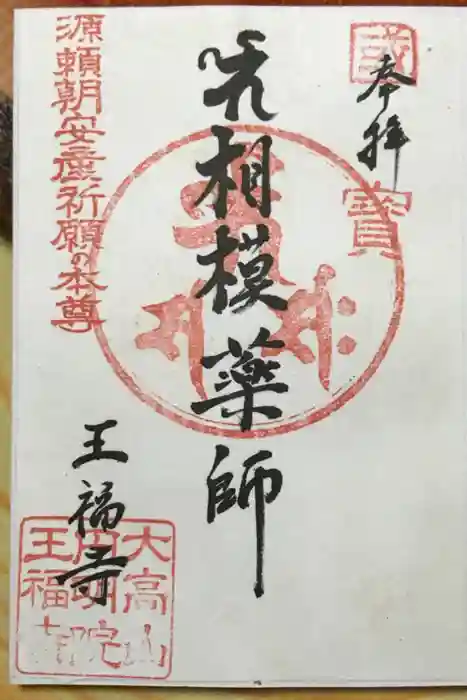 國寶
奉拝
相模藥師
王福寺
源頼朝安産祈願の本尊
大高山
円明院
王福寺